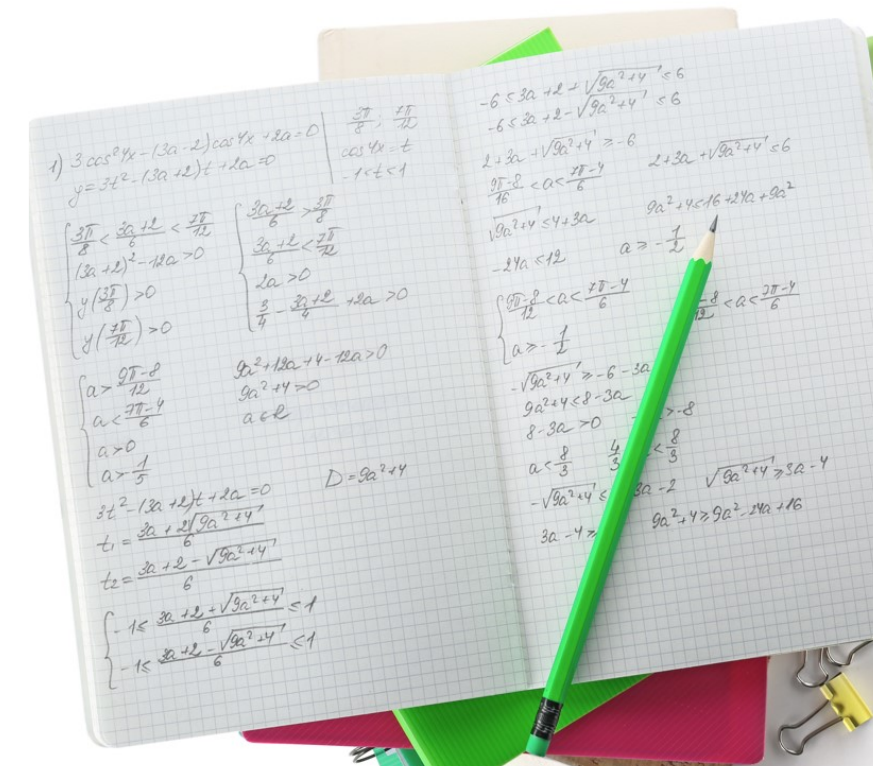 1) 3 cos²4x - (3a - 2) cos4x + 2a = 0
y = 3t² - (3a + 2)t + 2a = 0
3π/8 ; 7π/12
cos4x = t
-1 < t < 1
3π/8 < (3a + 2)/6 < 7π/12
(3a + 2)² - 12a > 0
y(3π/8) > 0
y(7π/12) > 0
(3a + 2)/6 > 3π/8
(3a + 2)/6 < 7π/12
2a > 0
3/4 - (3a + 2)/4 + 2a > 0
a > (9π - 8)/12
a < (7π - 4)/6
a > 0
a > -1/5
9a² + 12a + 4 - 12a > 0
9a² + 4 > 0
a ∈ R
3t² - (3a + 2)t + 2a = 0
D = 9a² + 4
t₁ = (3a + 2√(9a² + 4))/6
t₂ = (3a + 2 - √(9a² + 4))/6
-1 ≤ (3a + 2 + √(9a² + 4))/6 ≤ 1
-1 ≤ (3a + 2 - √(9a² + 4))/6 ≤ 1
-6 ≤ 3a + 2 + √(9a² + 4) ≤ 6
-6 ≤ 3a + 2 - √(9a² + 4) ≤ 6
2 + 3a + √(9a² + 4) ≥ -6
2 + 3a + √(9a² + 4) ≤ 6
(9π - 8)/16 < a < (7π - 4)/6
√(9a² + 4) ≤ 4 + 3a
9a² + 4 ≤ 16 + 24a + 9a²
-24a ≤ 12
a ≥ -1/2
(9π - 8)/12 < a < (7π - 4)/6
a ≥ -1/2
-8/12 < a < (7π - 4)/6
-√(9a² + 4) ≥ -6 - 3a
9a² + 4 ≤ 8 - 3a
8 - 3a > 0
> -8
a < 8/3
4/3
< 8/3
-√(9a² + 4) ≤ 3a - 2
√(9a² + 4) ≥ 3a - 4
3a - 4 ≥
9a² + 4 ≥ 9a² - 24a + 16